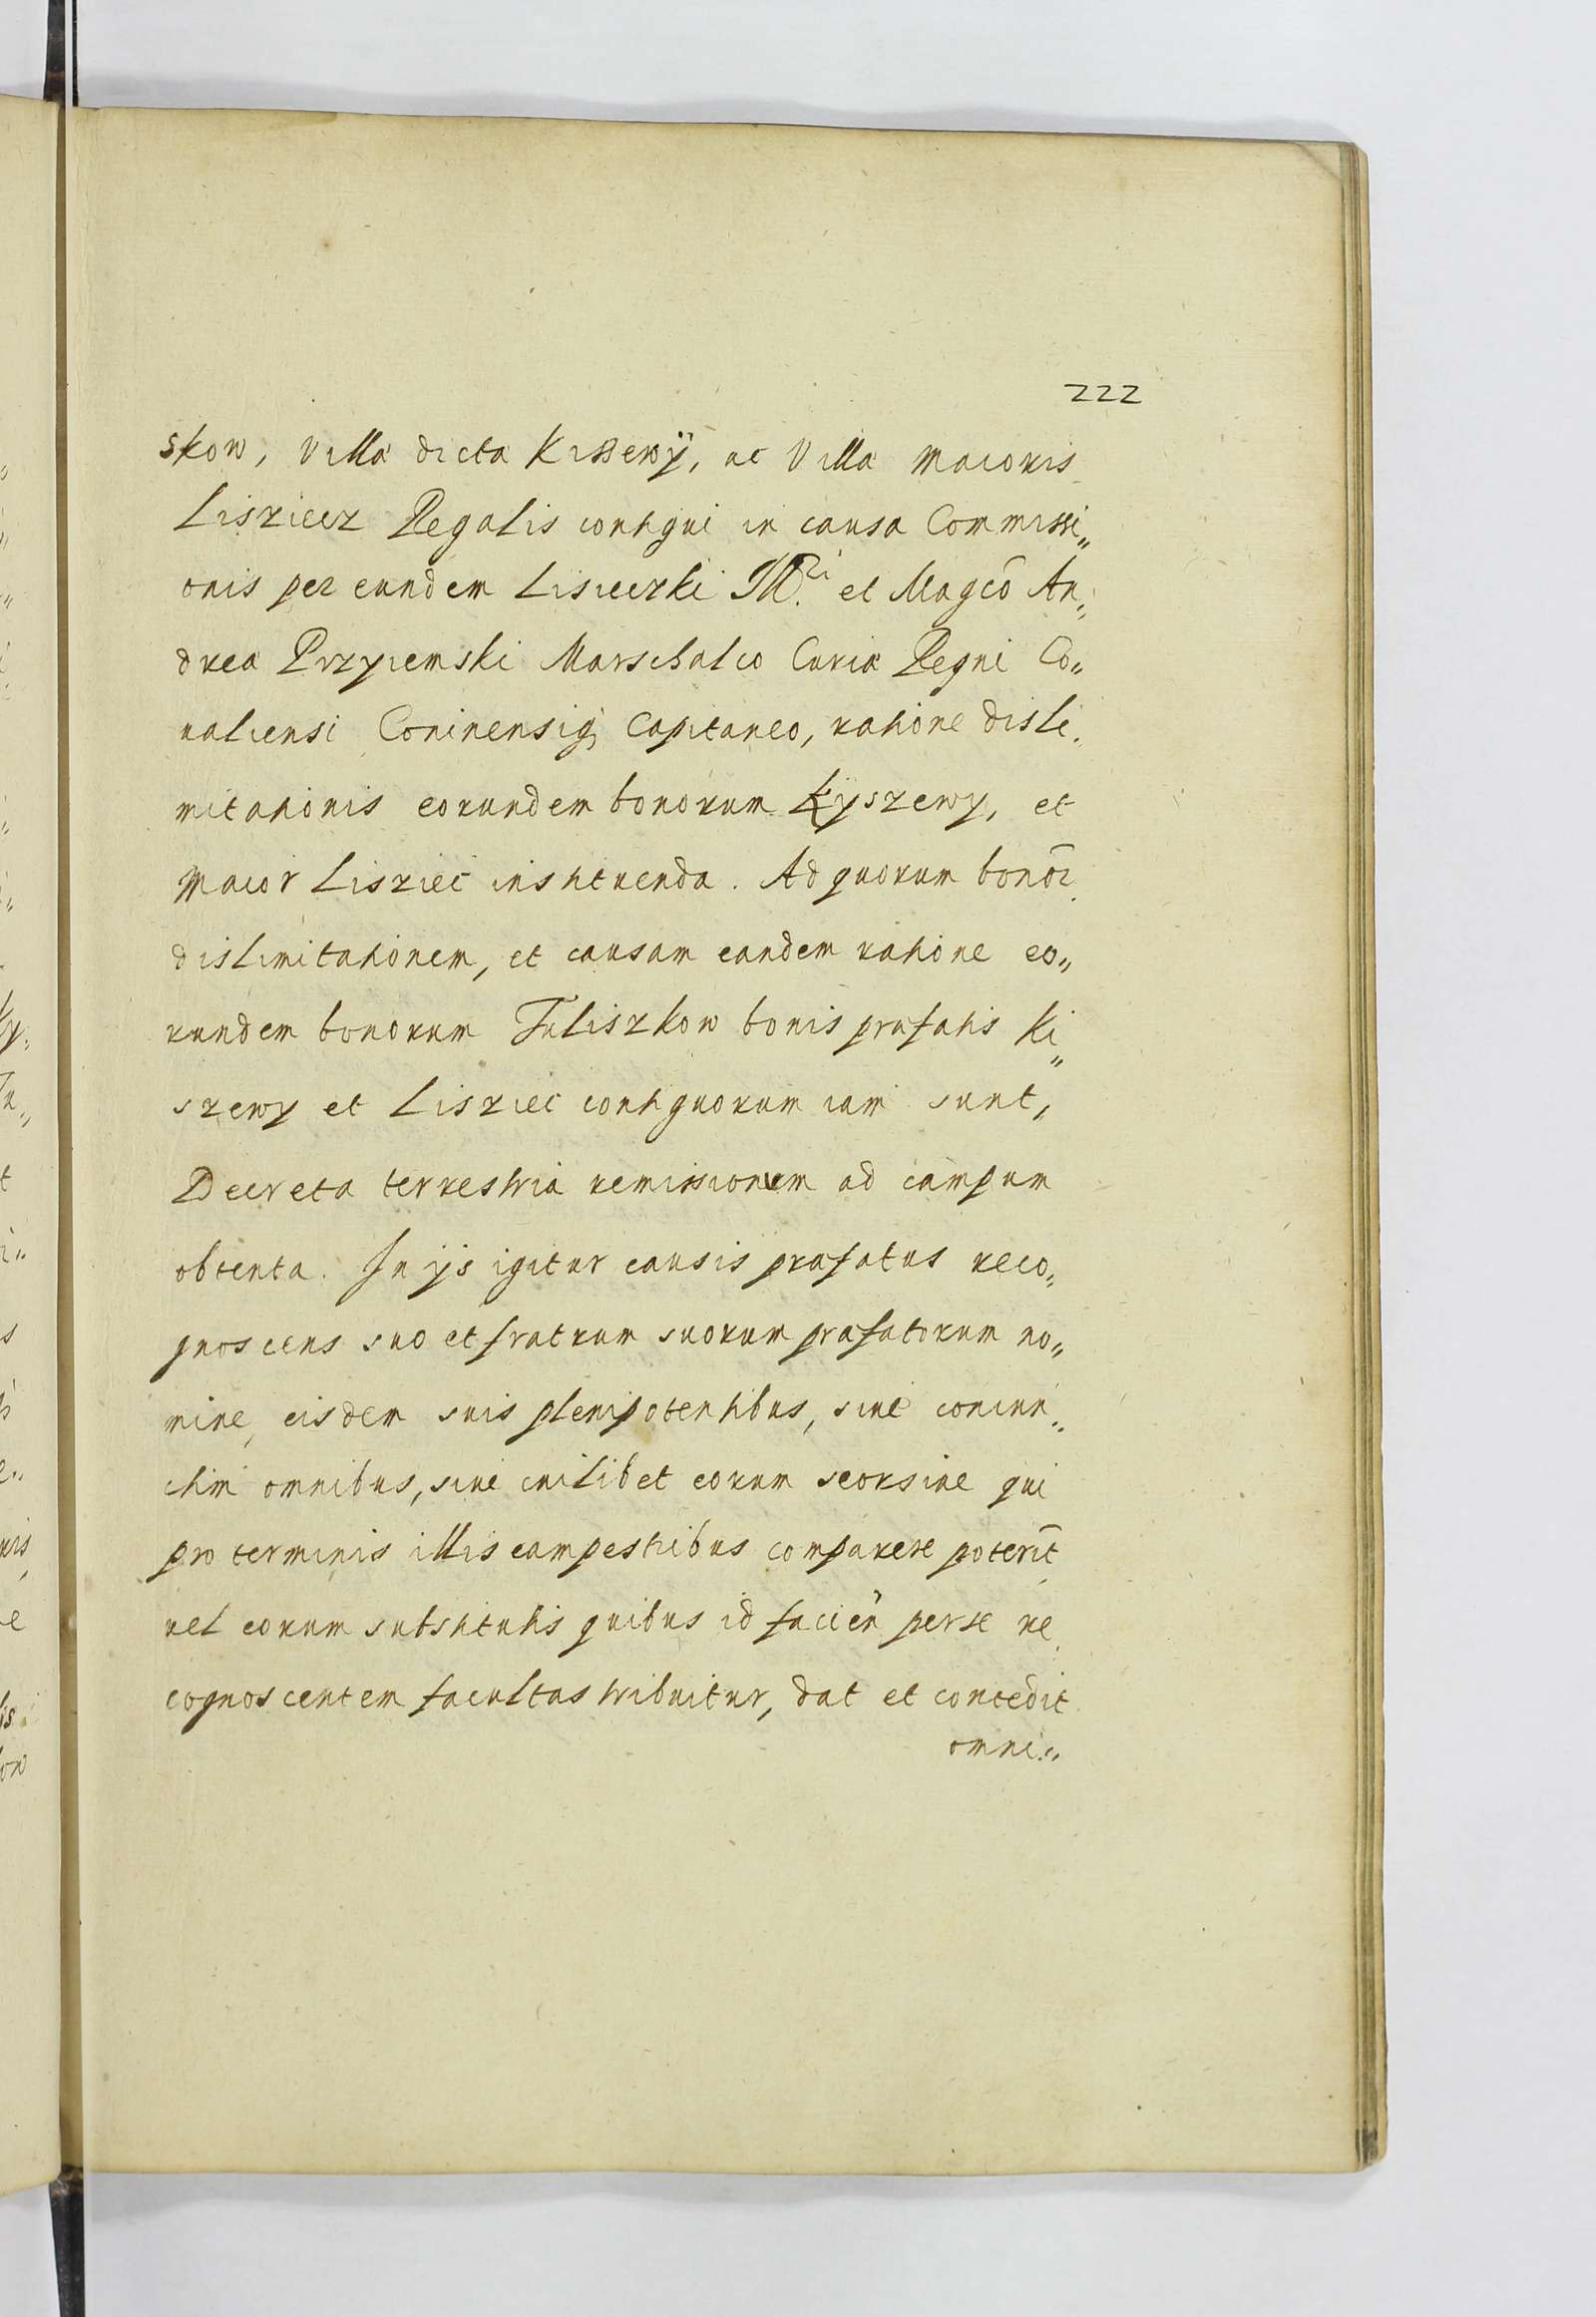 222
skow, Villa dicta Kissewÿ, ac Villa Maioris
Lisziecz Regalis contigui in causa Commissi„
onis per eundem Lisiecki et Magco An„
drea Przyiemski Marschalco Curia Regni Co„
ualiensi Coninensiq; Capitaneo, ratione disli„
mitationis eorundem bonorum Kyszewy, et
Maior Lisziec instituenda. Ad quorum bonor.
dislimitationem, et causam eandem ratione eo„
rundem bonorum Tuliszkow bonis prafatis Ki„
szewy et Lisziec contiguorum iam sunt,
Decreta terrestria remissionem ad campum
obtenta. In ijs igitur causis prafatus reco„
gnoscens suo et fratrum suorum prafatorum no„
mine, eisdem suis plenipotentibus, siue coniun„
ctim omnibus, siue cuilibet eorum seorsiue qui
pro terminis illis campestribus comparere poterit
uel eorum substitutis quibus id facien per se re„
cognoscentem facultas tribuitur, dat et concedit
omni„